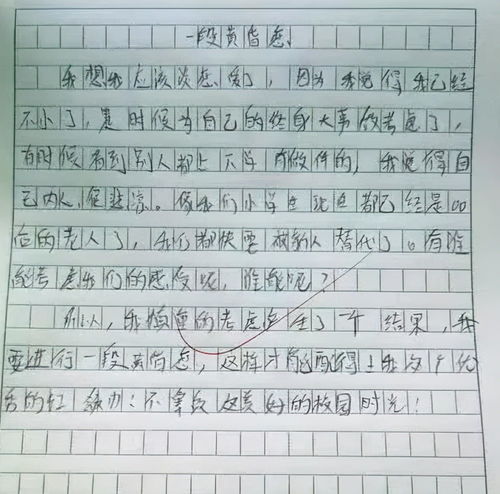 一段黄昏恋
我想我应该谈恋爱了，因为我觉得我已经
不小了，是时候为自己的终身大事做考虑了，
有时候看到别人都上下学有做伴的，我觉得自
己内人很悲凉。像我们小学生现在都已经是00
后的老人了，我们都快要被新人替代了。有谁
能考虑我们的感受呢，谁能呢？
所以，我慎重的考虑产生了一个结果，我
要进行一段黄昏恋，这样才能配得上我这个优
秀的红领巾！不辜负这美好的校园时光！